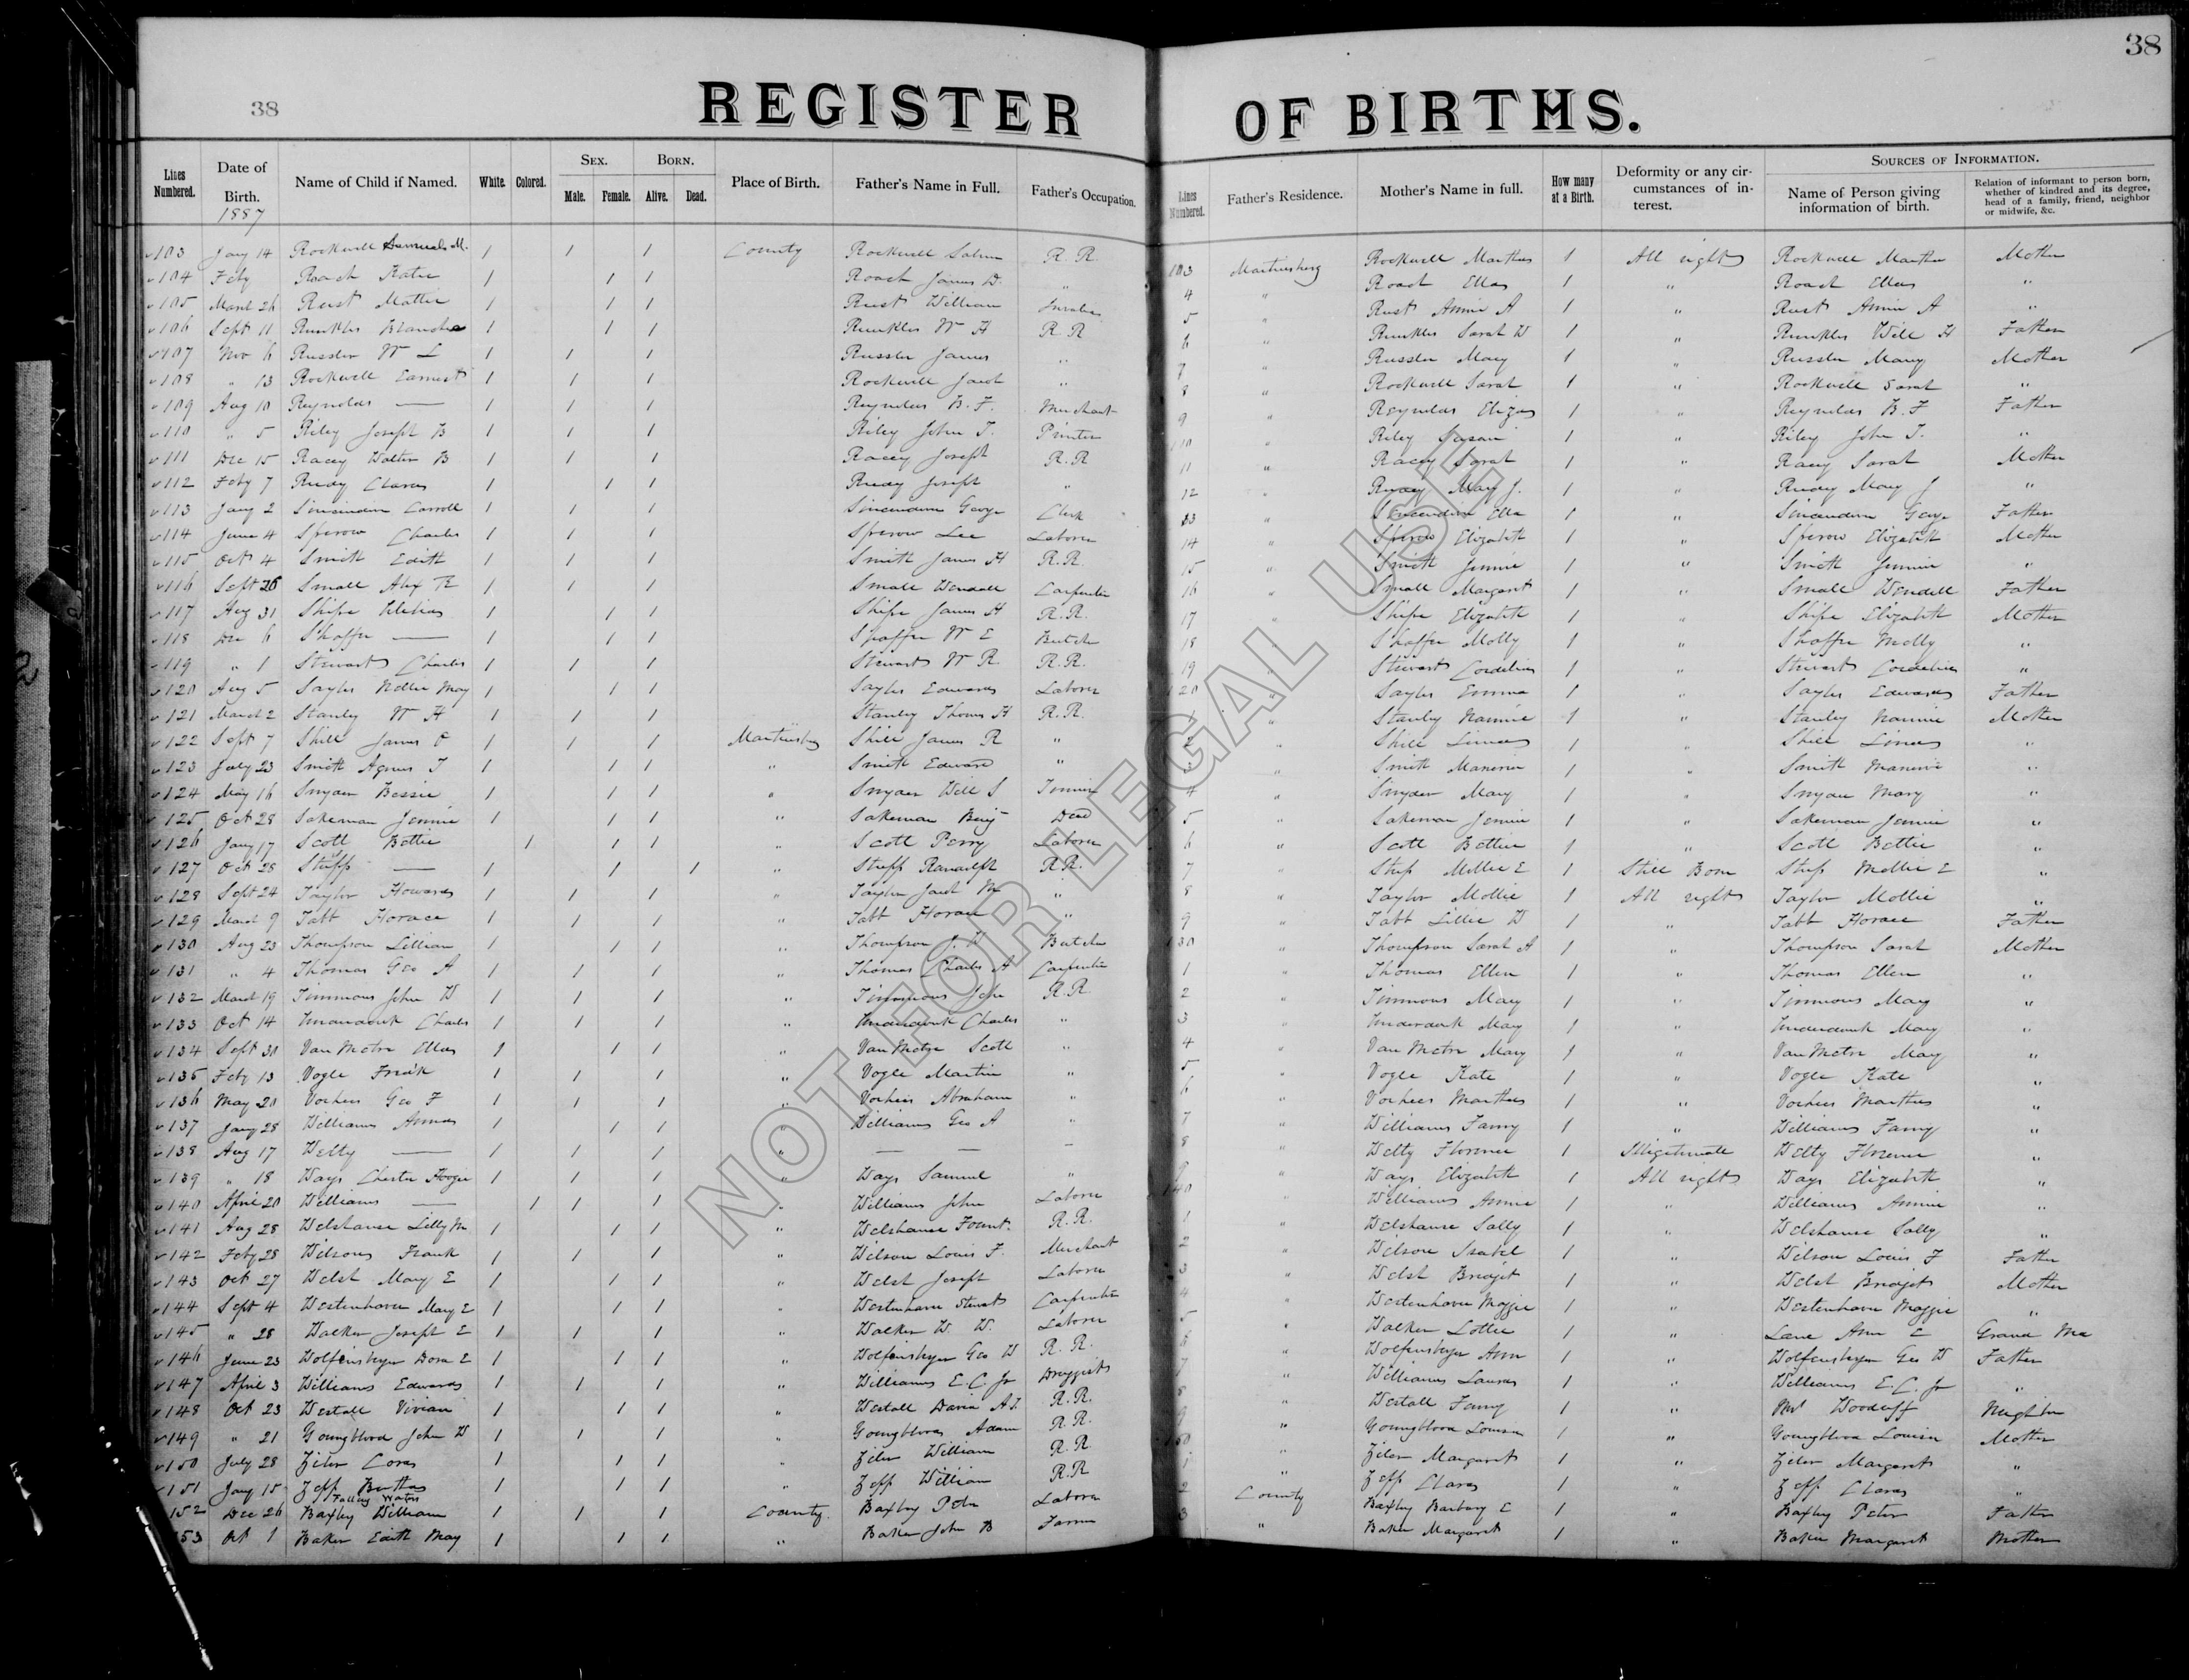 38
38
REGISTER OF BIRTHS.
Lines Numbered. Date of Birth. Name of Child if Named. White. Colored. Sex. Male. Female. Born. Alive. Dead. Place of Birth. Father's Name in Full. Father's Occupation. Lines Numbered. Father's Residence. Mother's Name in full. How many at a Birth. Deformity or any circumstances of interest. Sources of Information. Name of Person giving information of birth. Relation of informant to person born, whether of kindred and its degree, head of a family, friend, neighbor or midwife, &c.
1887
103 Jany 14 Rockwell M. 1 1 1 County Rockwell R. R. 103 Martinsburg Rockwell Martha 1 All right Rockwell Martha Mother
104 Feby Roach Katie 1 1 1 Roach James W. " 4 " Roach Ella 1 " Roach Ella "
105 March 26 Rust Mattie 1 1 1 Rust William 5 " Rust Annie A 1 " Rust Annie A "
106 Sept 11 Runkles Blanche 1 1 1 Runkles W H R. R 6 " Runkles Sarah W 1 " Runkles Will H Father
107 Nov 6 Russler W L 1 1 1 Russler James " 7 " Russler Mary 1 " Russler Mary Mother
108 " 13 Rockwell Earnest 1 1 1 Rockwell Jacob " 8 " Rockwell Sarah 1 " Rockwell Sarah "
109 Aug 10 Reynolds — 1 1 1 Reynolds B. F. Merchant 9 " Reynolds Eliza 1 " Reynolds B. F Father
110 " 5 Riley Joseph B 1 1 1 Riley John T. Printer 110 Riley Susan 1 Riley John T. "
111 Dec 15 Racey Walter B 1 1 1 Racey Joseph R. R 11 " Racey Sarah 1 " Racey Sarah Mother
112 Feby 7 Rudy Clara 1 1 1 Rudy Joseph " 12 " Rudy Mary J. 1 " Rudy Mary J "
113 Jany 2 Sincindiver Carroll 1 1 1 Sincindiver George Clerk 13 " Sincindiver Ella 1 " Sincindiver George Father
114 June 4 Sperow Charles 1 1 1 Sperow Lee Laborer 14 " Sperow Elizabeth 1 " Sperow Elizabeth Mother
115 Oct 4 Smith Edith 1 1 1 Smith James H R. R. 15 " Smith Jennie 1 " Smith Jennie "
116 Sept 26 Small Alex R 1 1 1 Small Wendell Carpenter 16 " Small Margaret 1 " Small Wendell Father
117 Aug 31 Shipe 1 1 1 Shipe James H R. R. 17 " Shipe Elizabeth 1 " Shipe Elizabeth Mother
118 Dec 6 Shaffer — 1 1 1 Shaffer W E Butcher 18 " Shaffer Molly 1 " Shaffer Molly "
119 " 1 Stewart Charles 1 1 1 Stewart W R R. R. 19 " Stewart Cordelia 1 " Stewart Cordelia "
120 Aug 5 Sayles Nellie May 1 1 1 Sayles Edward Laborer 120 " Sayles Emma 1 " Sayles Edward Father
121 March 2 Stanley W H 1 1 1 Stanley Thomas H R. R. 1 " Stanley Nannie 1 " Stanley Nannie Mother
122 Sept 7 Shill James O 1 1 1 Martinsburg Shill James R " 2 " Shill Linda 1 " Shill Linda "
123 July 23 Smith Agnes T 1 1 1 " Smith Edward " 3 " Smith 1 " Smith "
124 May 16 Snyder Bessie 1 1 1 " Snyder Will S Tinner 4 " Snyder Mary 1 " Snyder Mary "
125 Oct 28 Sakeman Jennie 1 1 1 " Sakeman Benj Dead 5 " Sakeman Jennie 1 " Sakeman Jennie "
126 Jany 17 Scott Bettie 1 1 1 " Scott Perry Laborer 6 " Scott Bettie 1 " Scott Bettie "
127 Oct 28 — 1 1 1 " Randolph R R. 7 " Mollie E 1 Still Born Mollie E "
128 Sept 24 Taylor Howard 1 1 1 " Taylor Jacob M " 8 " Taylor Mollie 1 All right Taylor Mollie "
129 March 9 Tabb Horace 1 1 1 " Tabb Horace " 9 " Tabb Lillie W 1 " Tabb Horace Father
130 Aug 23 Thompson Lillian 1 1 1 " Thompson J. W Butcher 130 " Thompson Sarah A 1 " Thompson Sarah Mother
131 " 4 Thomas Geo A 1 1 1 " Thomas Charles A Carpenter 1 " Thomas Ellen 1 " Thomas Ellen "
132 March 19 Timmons John W 1 1 1 " Timmons John R. R 2 " Timmons Mary 1 " Timmons Mary "
133 Oct 14 Underdonk Charles 1 1 1 " Underdonk Charles " 3 " Underdonk Mary 1 " Underdonk Mary "
134 Sept 30 Van Metre Ella 1 1 1 " Van Metre Scott " 4 " Van Metre Mary 1 " Van Metre Mary "
135 Feby 13 Vogle Frank 1 1 1 " Vogle Martin " 5 " Vogle Kate 1 " Vogle Kate "
136 May 20 Vorhees Geo F 1 1 1 " Vorhees Abraham " 6 " Vorhees Martha 1 " Vorhees Martha "
137 Jany 28 Williams Anna 1 1 1 " Williams Geo A " 7 " Williams Fanny 1 " Williams Fanny "
138 Aug 17 Welty — 1 1 1 " — — — 8 " Welty Florence 1 Illigitimate Welty Florence "
139 " 18 Ways Chester 1 1 1 " Ways Samuel " 9 " Ways Elizabeth 1 All right Ways Elizabeth "
140 April 20 Williams — 1 1 1 " Williams John Laborer 140 " Williams Annie 1 " Williams Annie "
141 Aug 28 Welshanse Lilly M 1 1 1 " Welshanse Fount. R. R. 1 " Welshanse Sally 1 " Welshanse Sally "
142 Feby 28 Wilson Frank 1 1 1 " Wilson Louis F. Merchant 2 " Wilson Isabel 1 " Wilson Louis F Father
143 Oct 27 Welsh Mary E 1 1 1 " Welsh Joseph Laborer 3 " Welsh Bridget 1 " Welsh Bridget Mother
144 Sept 4 Westenhaver Mary E 1 1 1 " Westenhaver Stewart Carpenter 4 " Westenhaver Maggie 1 " Westenhaver Maggie "
145 " 28 Walker Joseph E 1 1 1 " Walker W. W. Laborer 5 " Walker Lottie 1 " Lane Ann E Grand Ma
146 June 23 Wolfensberger Dora E 1 1 1 " Wolfensberger Geo W R. R. 6 " Wolfensberger Ann 1 " Wolfensberger Geo W Father
147 April 3 Williams Edward 1 1 1 " Williams E. C. Jr Druggist 7 " Williams Laura 1 " Williams E. C. Jr "
148 Oct 23 Westall Vivian 1 1 1 " Westall David A. R. R. 8 " Westall Fanny 1 " Mrs Woodruff Neighbor
149 " 21 Youngblood John W 1 1 1 " Youngblood Adam R. R. 9 " Youngblood Louisa 1 " Youngblood Louisa Mother
150 July 28 Ziler Cora 1 1 1 " Ziler William R. R. 150 " Ziler Margaret 1 " Ziler Margaret "
151 Jany 15 Zepp Bertha 1 1 1 " Zepp William R. R 1 " Zepp Clara 1 " Zepp Clara "
Falling Waters
152 Dec 26 Baxley William 1 1 1 County Baxley Peter Laborer 2 County Baxley Barbary E 1 " Baxley Peter Father
153 Oct 1 Baker Edith May 1 1 1 " Baker John B Farmer 3 " Baker Margaret 1 " Baker Margaret Mother
NOT FOR LEGAL USE